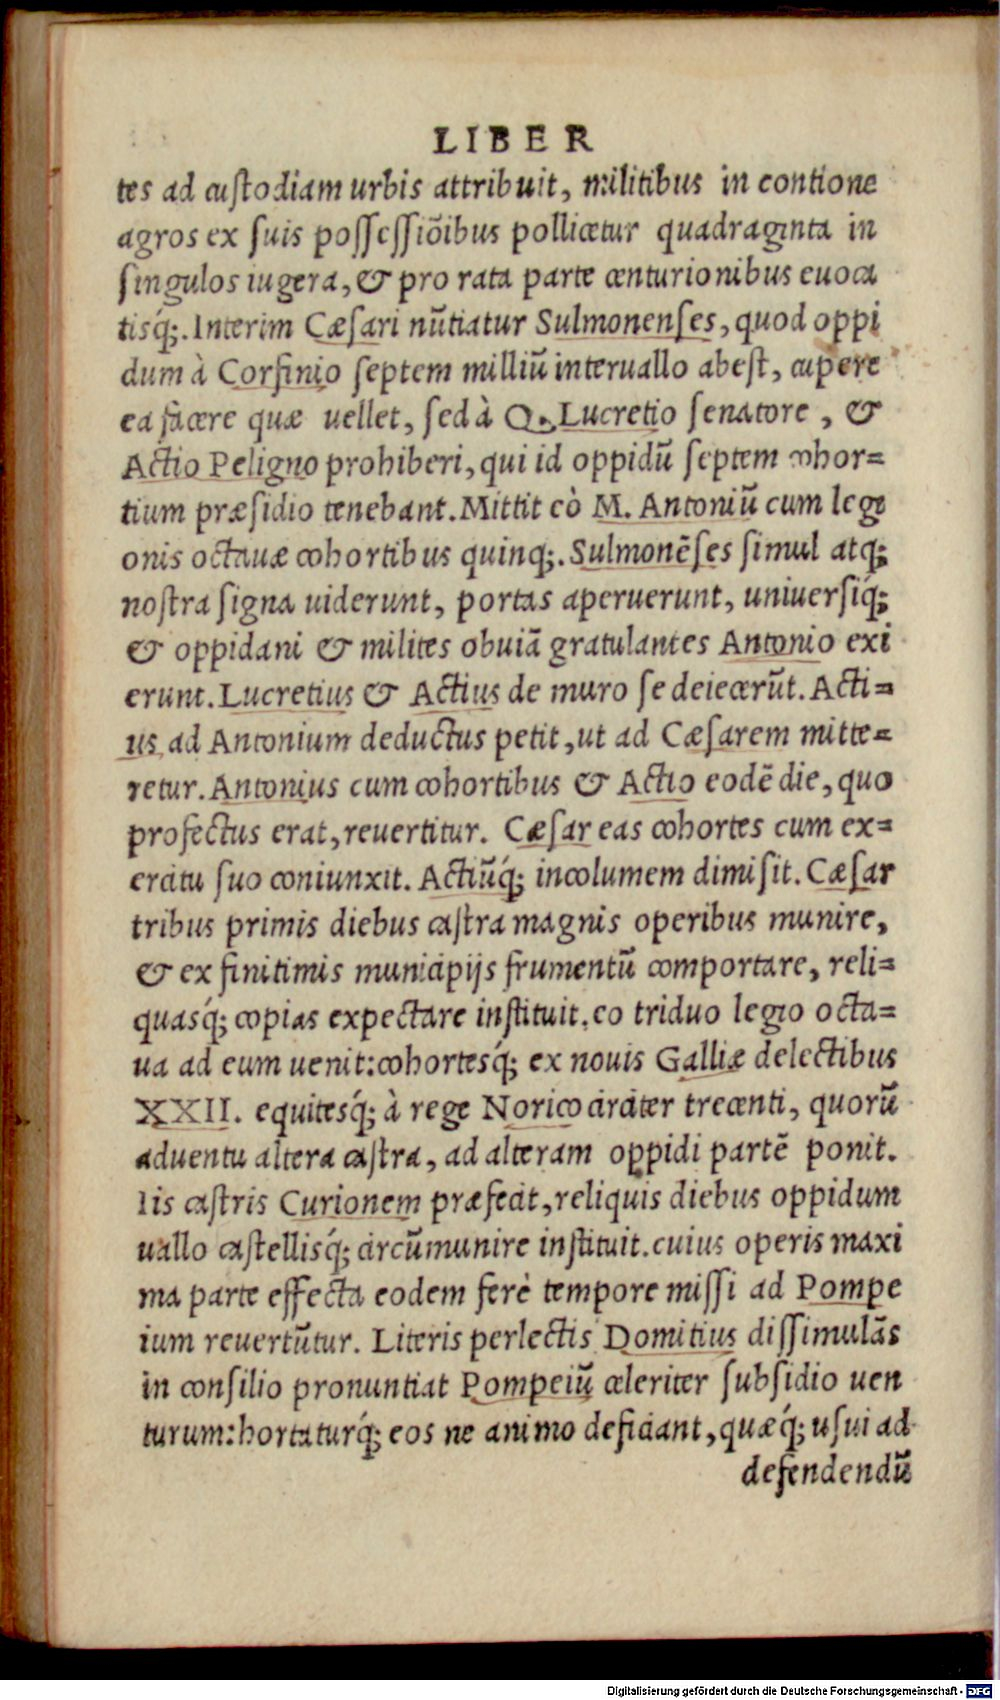 LIBER
tes ad custodiam urbis attribuit, militibus in contione
agros ex suis possessiõibus pollicetur quadraginta in
singulos iugera, & pro rata parte centurionibus euoca
tisq́;. Interim Cæsari nũtiatur Sulmonenses, quod oppi
dum à Corfinio septem milliũ interuallo abest, cupere
ea facere quæ uellet, sed à Q. Lucretio senatore, &
Actio Peligno prohiberi, qui id oppidũ septem cohor=
tium præsidio tenebant. Mittit eò M. Antoniũ cum legi
onis octauæ cohortibus quinq;. Sulmonẽses simul atq;
nostra signa uiderunt, portas aperuerunt, uniuersiq́;
& oppidani & milites obuiã gratulantes Antonio exi
erunt. Lucretius & Actius de muro se deiecerũt. Acti=
us ad Antonium deductus petit, ut ad Cæsarem mitte=
retur. Antonius cum cohortibus & Actio eodẽ die, quo
profectus erat, reuertitur. Cæsar eas cohortes cum ex=
ercitu suo coniunxit. Actiũq́; incolumem dimisit. Cæsar
tribus primis diebus castra magnis operibus munire,
& ex finitimis municipijs frumentũ comportare, reli=
quasq́; copias expectare instituit. eo triduo legio octa=
ua ad eum uenit: cohortesq́; ex nouis Galliæ delectibus
XXII. equitesq́; à rege Norico circiter trecenti, quorũ
aduentu altera castra, ad alteram oppidi partẽ ponit.
Iis castris Curionem præfecit, reliquis diebus oppidum
uallo castellisq́; circũmunire instituit. cuius operis maxi
ma parte effecta eodem ferè tempore missi ad Pompe
ium reuertũtur. Literis perlectis Domitius dissimulãs
in consilio pronuntiat Pompeiũ celeriter subsidio uen
turum: hortaturq́; eos ne animo deficiant, quæq́; usui ad
defendendũ
Digitalisierung gefördert durch die Deutsche Forschungsgemeinschaft - DFG